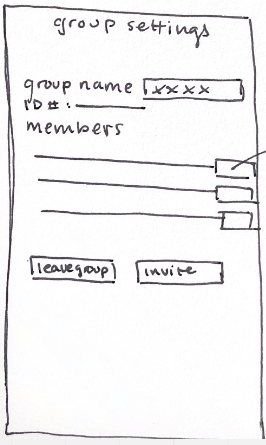 group settings
group name xxxx
ID #:
members
leave group invite